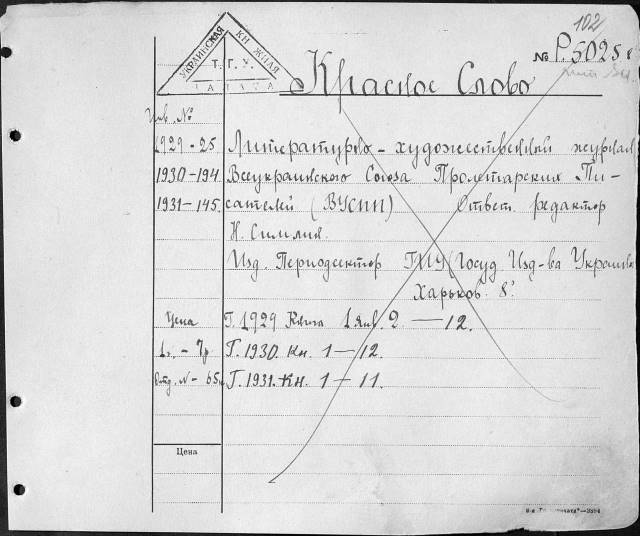 102
УКРАИНСКАЯ КНИЖНАЯ
Т. Г. У.
ПАЛАТА
№ Р.5025
Красное Слово
Инв. №
1929-25 Литературно-художественный журнал
1930-194 Всеукраинского Союза Пролетарских Пи-
1931-145 сателей (ВУСПП) Ответ. редактор
Изд. Периодсектор ГИУ (Госуд. Изд-ва Украины
Харьков. 8°.
Цена Г. 1929 Книга 1 янв. 2 — 12.
1 г. - 7р Г. 1930. Кн. 1 — 12.
Отд. № - 65к Г. 1931. Кн. 1 — 11.
Цена